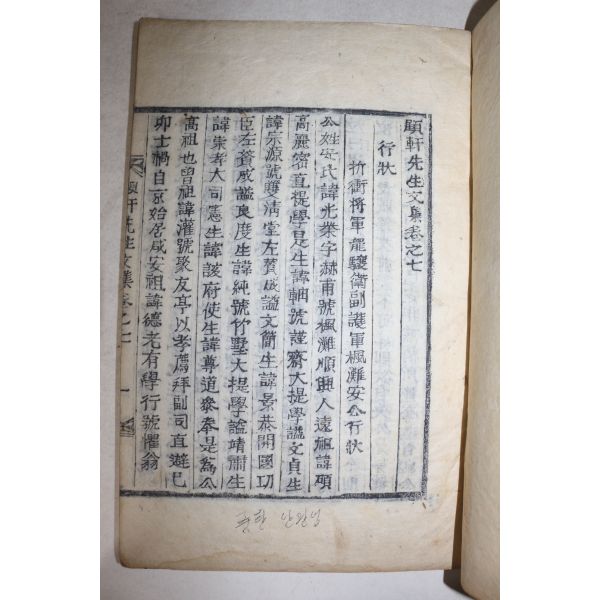 顧軒先生文集卷之七
行狀
折衝將軍龍驤衛副護軍楓灘安公行狀
公姓安氏諱光業字赫甫號楓灘順興人遠祖諱碩
高麗密直提學是生諱軸號謹齋大提學謚文貞生
諱宗源號雙清堂左贊成謚文簡生諱景恭開國功
臣左贊成謚良度生諱純號竹墅大提學謚靖肅生
諱崇孝大司憲生諱諼府使生諱尊道參奉是爲公
高祖也曾祖諱灌號聚友亭以孝薦拜副司直遊己
卯士禍自京始居咸安祖諱德老有學行號懼翁
顧軒先生文集卷之七 一